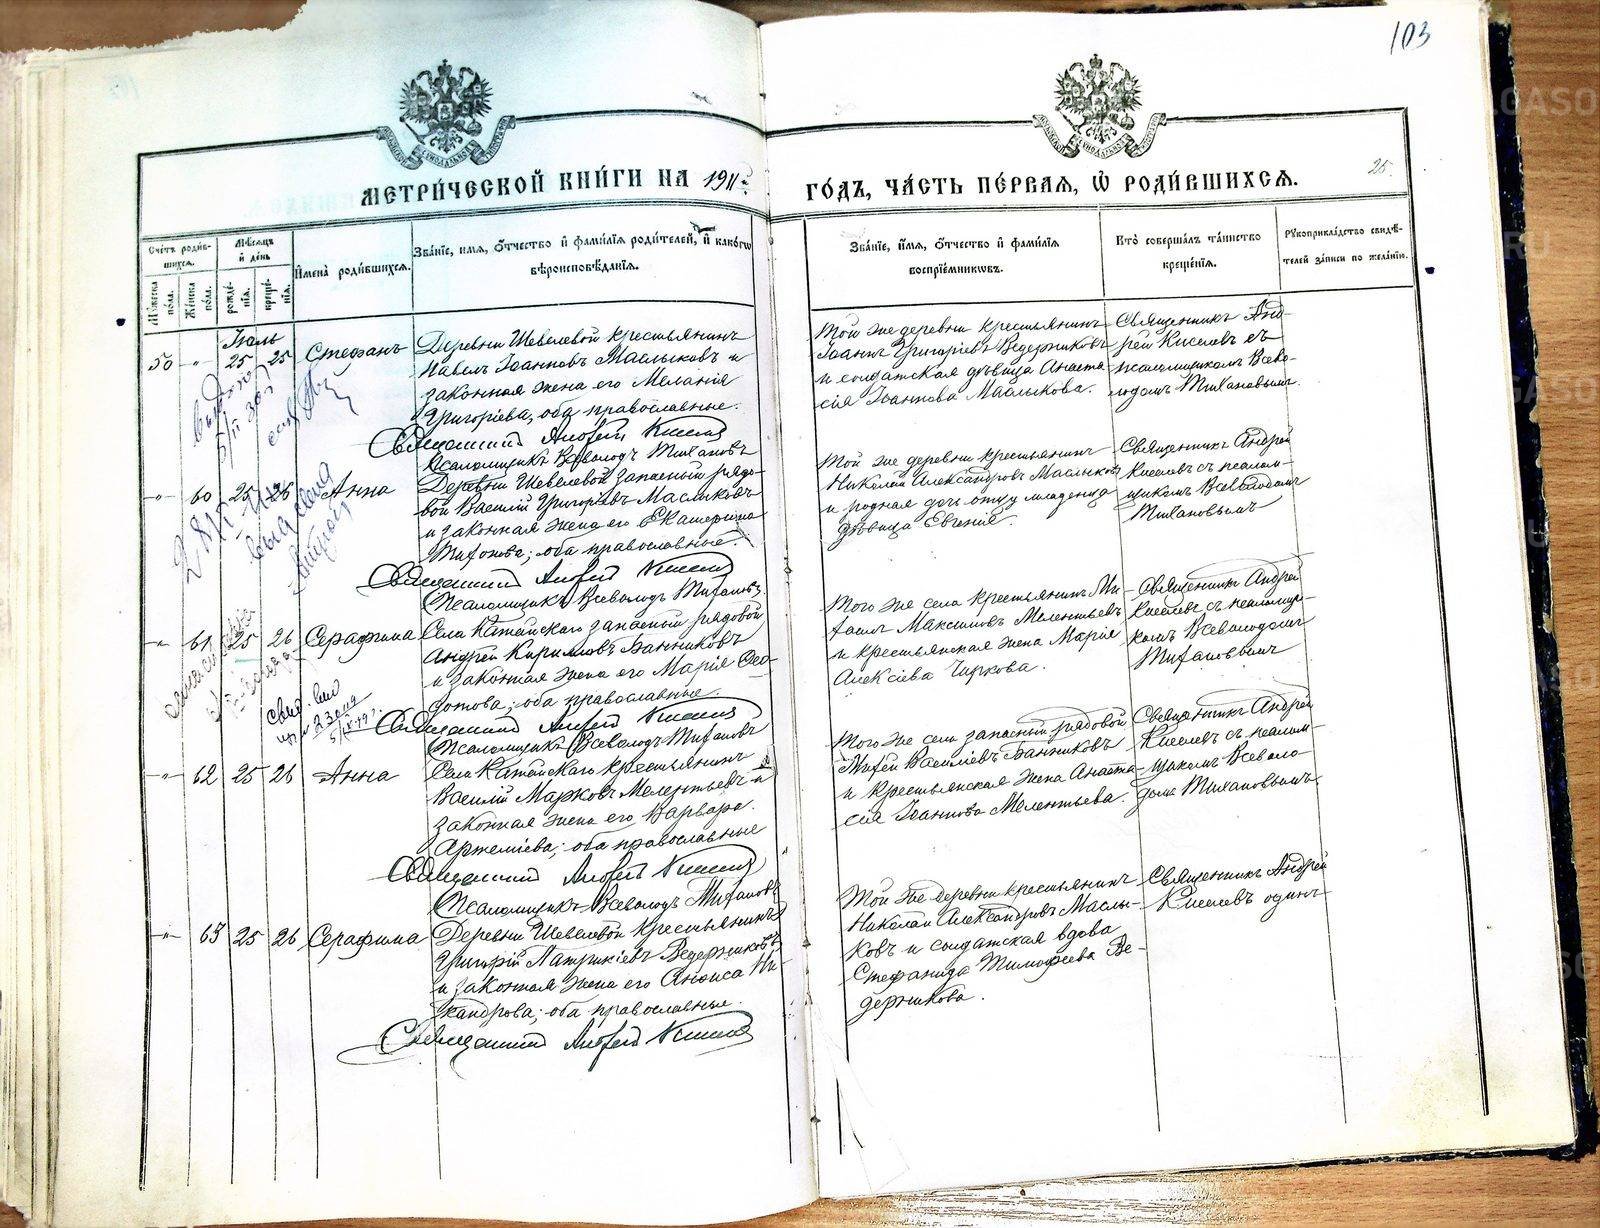 103
25.
МЕТРИ́ЧЕСКОЙ КНИ́ГИ НА 1911
ГО́ДЪ, ЧА́СТЬ ПЕ́РВАЯ, Ѡ҆ РОДИ́ВШИХСЯ.
Счетъ роди́в-
шихся.
Мꙋжеска по́ла.
Же́нска по́ла.
Мѣ́сяцъ
и҆ де́нь
рожде́-
нїя.
креще́-
нїя.
И҆мена̀ роди́вшихся.
Зва́нїе, и҆мя, ѻ҆́тчество и҆ фами́лїя роди́телей, и҆ како́гѡ
вѣроисповѣ́данїя.
Зва́нїе, и҆́мя, ѻ҆́тчество и҆ фами́лїя
воспрїе́мникѡвъ.
Кто̀ соверша́лъ та́инство
креще́нїя.
Рꙋкоприкла́дство свидѣ́-
телей за́писи по жела́нїю.
Іюль
50 " 25 25 Стефанъ
Деревни Шевелевой крестьянинъ
Павелъ Іоанновъ Маслыковъ и
законная жена его Меланія
Григоріева, оба православные.
Священникъ Андрей Киселевъ
Псаломщикъ Всеволодъ Тихановъ
Той же деревни крестьянинъ
Іоаннъ Григоріевъ Ведерниковъ
и солдатская дѣвица Анаста-
сія Іоаннова Маслыкова.
Священникъ Анд-
рей Киселевъ съ
псаломщикомъ Всево-
лодомъ Тихановымъ.
" 60 25 26 Анна
Деревни Шевелевой запасный рядо-
вой Василій Григоріевъ Маслыковъ
и законная жена его Екатерина
Тихонова; оба православные.
Священникъ Андрей Киселевъ
Псаломщикъ Всеволодъ Тихановъ
Той же деревни крестьянинъ
Николай Александровъ Маслыковъ
и родная дочь отцу младенца
дѣвица Евгенія.
Священникъ Андрей
Киселевъ съ псалом-
щикомъ Всеволодомъ
Тихановымъ
" 61 25 26 Серафима
Села Катайскаго запасный рядовой
Андрей Кирилловъ Банниковъ
и законная жена его Марія Ѳео-
дотова; оба православные.
Священникъ Андрей Киселевъ
Псаломщикъ Всеволодъ Тихановъ
Того же села крестьянинъ Ми-
хаилъ Максимовъ Мелентьевъ
и крестьянская жена Марія
Алексіева Чиркова.
Священникъ Андрей
Киселевъ съ псаломщи-
комъ Всеволодомъ
Тихановымъ
" 62 25 26 Анна
Села Катайскаго крестьянинъ
Василій Марковъ Мелентьевъ и
законная жена его Варвара
Артеміева; оба православные
Священникъ Андрей Киселевъ
Псаломщикъ Всеволодъ Тихановъ
Того же села запасный рядовой
Василіевъ Банниковъ
и крестьянская жена Анаста-
сія Іоаннова Мелентьева.
Священникъ Андрей
Киселевъ съ псалом-
щикомъ Всеволо-
домъ Тихановымъ.
" 63 25 26 Серафима
Деревни Шевелевой крестьянинъ
Григорій Патрикіевъ Ведерниковъ
и законная жена его Аниса Ни-
кандрова; оба православные.
Священникъ Андрей Киселевъ
Той же деревни крестьянинъ
Николай Александровъ Маслы-
ковъ и солдатская вдова
Стефанида Тимофеева Ве-
дерникова.
Священникъ Андрей
Киселевъ одинъ